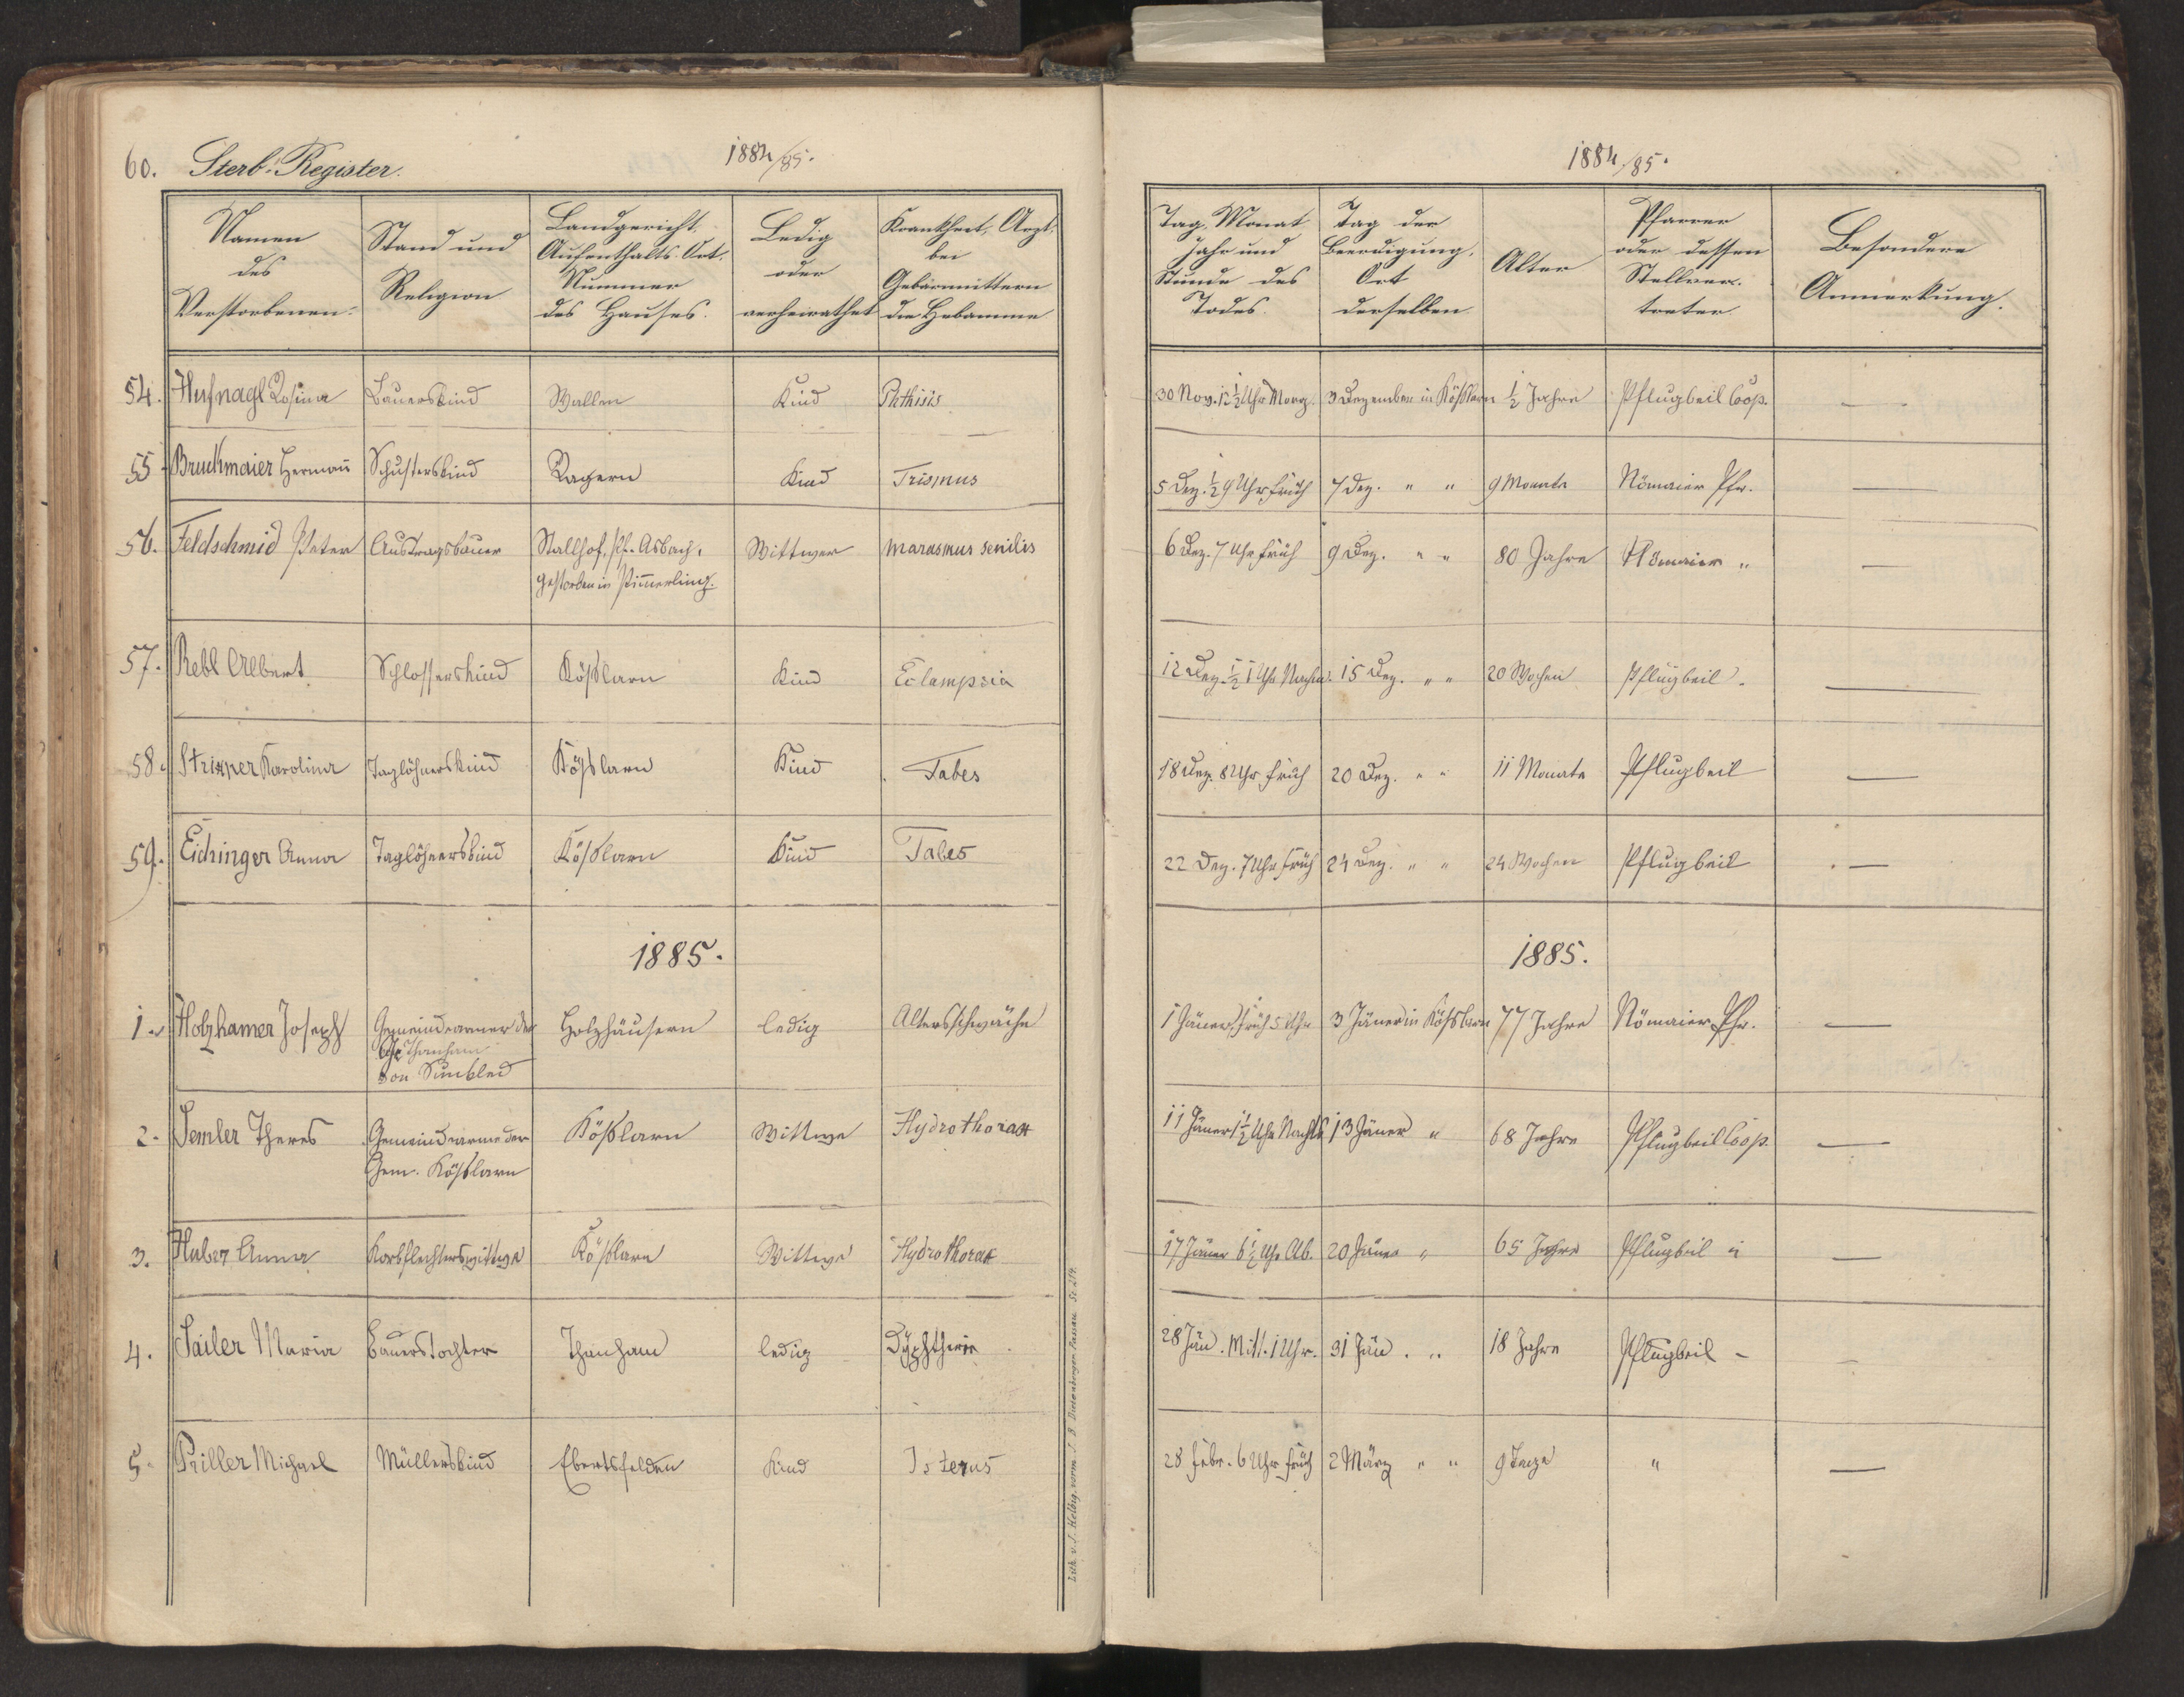 60. Sterb-Register. 1884/85.
Namen des Verstorbenen. Stand und Religion Landgericht, Aufenthalts-Ort. Nummer des Hauses. Ledig oder verheirathet Krankheit, Arzt, bei Gebärmüttern die Hebamme
54. Hufnagl Rosina Bauerskind Wallen Kind Phthisis
55 Bruckmaier Hermann Schusterskind Ragern Kind Trismus
56. Feldschmid Peter Austragsbauer Stallhof, Pf. Asbach, Wittwer marasmus senilis
gestorben in Pimerling.
57. Rebl Albert Schlosserskind Kößlarn Kind Eclampsia
58. Strixner Karolina Taglöhnerskind Kößlarn Kind Tabes
59. Eichinger Anna Taglöhnerskind Kößlarn Kind Tabes
1885.
1. Holzhamer Joseph Gemeindearmer der Holzhäusern ledig Altersschwäche
Ge. Thanham
von
2. Semler Theres Gemeindearme der Kößlarn Wittwe Hydrothorax
Gem. Kößlarn
3. Huber Anna Korbflechterswittwe Kößlarn Wittwe Hydrothorax
4. Sailer Maria Bauerstochter Thanham ledig Dyphtherie
5. Priller Michael Müllerskind Ebertsfelden Kind Icterus
Lith. v. J. Helbig, vorm. J. B. Dietenberger Passau.
1884/85.
Tag, Monat Jahr und Stunde des Todes. Tag der Beerdigung, Ort derselben Alter Pfarrer oder dessen Stellvertreter. Besondere Anmerkung.
30 Nov. 12 1/2 Uhr Morg. 3 Dezember in Kößlarn 1/2 Jahre Pflugbeil Coop. —
5 Dez. 1/2 9 Uhr früh 7 Dez. " " 9 Monate Nömaier Pfr. —
6 Dez. 7 Uhr früh 9 Dez. " " 80 Jahre Nömaier " —
12 Dez. 1/2 1 Uhr Nachm. 15 Dez. " " 20 Wochen Pflugbeil. —
18 Dez. 8 Uhr früh 20 Dez. " " 11 Monate Pflugbeil —
22 Dez. 7 Uhr früh 24 Dez. " " 24 Wochen Pflugbeil —
1885.
1 Jäner früh 5 Uhr 3 Jäner in Kößlarn 77 Jahre Nömaier Pfr. —
11 Jäner 1 1/2 Uhr Nachts 13 Jäner " 68 Jahre Pflugbeil Coop. —
17 Jäner 6 1/2 Uhr Ab. 20 Jäner " 65 Jahre Pflugbeil " —
28 Jän. Mitt. 1 Uhr. 31 Jän. " 18 Jahre Pflugbeil - —
28 Febr. 6 Uhr früh 2 März " " 9 Tage " —